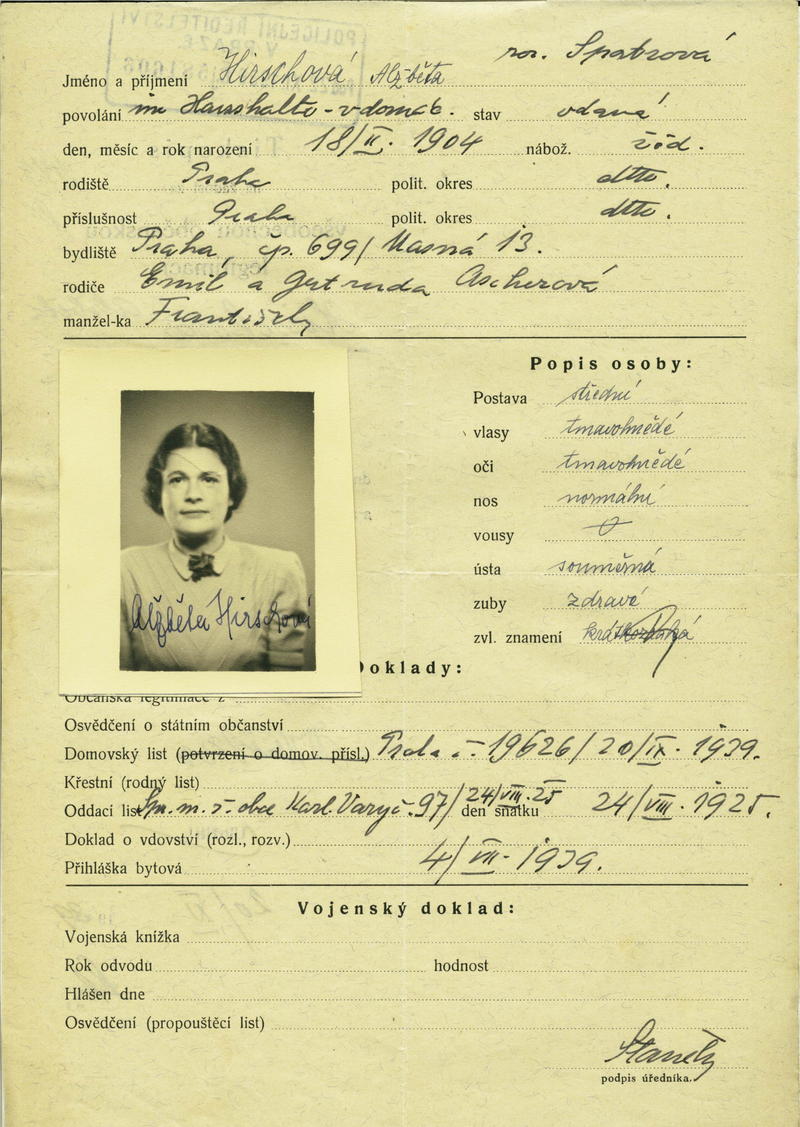 roz. Spatzová
Jméno a příjmení Hirschová Alžběta
povolání im Haushalte - v domác. stav vdaná
den, měsíc a rok narození 18/II. 1904 nábož. žid.
rodiště Praha polit. okres dtto.
příslušnost Praha polit. okres dtto.
bydliště Praha, čp. 699/ Masná 13.
rodiče Emil a Gertruda Ascherová
manžel-ka František
Popis osoby:
Postava střední
vlasy tmavohnědé
oči tmavohnědé
nos normální
vousy
ústa souměrná
zuby zdravé
zvl. znamení
Alžběta Hirschová
Doklady:
Občanská legitimace z
Osvědčení o státním občanství
Domovský list (potvrzení o domov. přísl.) Praha č. 19626/20/IX. 1939.
Křestní (rodný list)
Oddací list m. ž. obce Karl. Vary č. 97/24/VIII. 25 den sňatku 24/VIII. 1925.
Doklad o vdovství (rozl., rozv.)
Přihláška bytová 4/VII. 1939.
Vojenský doklad:
Vojenská knížka
Rok odvodu hodnost
Hlášen dne
Osvědčení (propouštěcí list)
podpis úředníka.